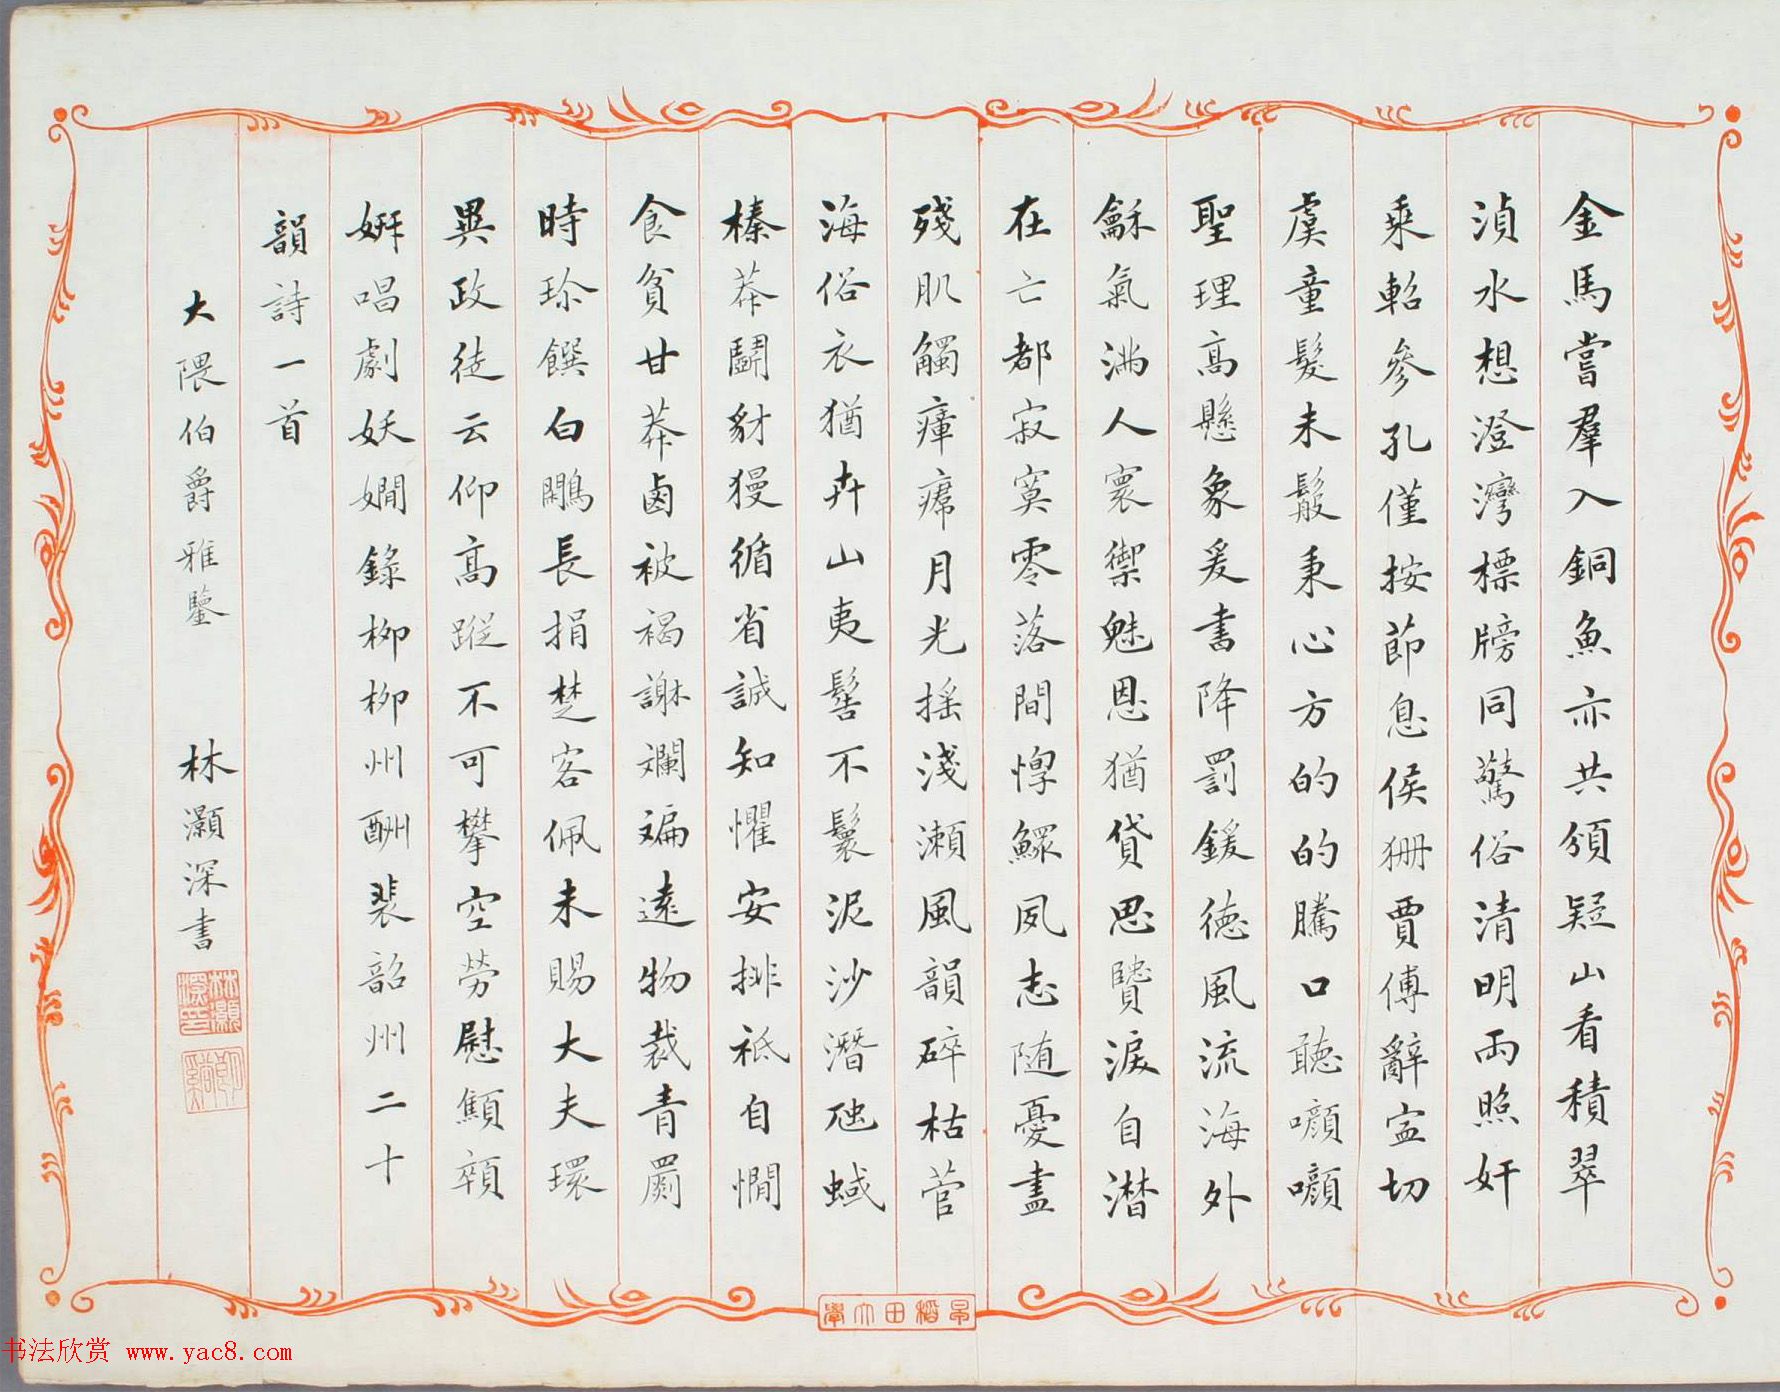 金馬嘗羣入銅魚亦共頒疑山看積翠
湞水想澄灣標牓同驚俗清明兩照奸
乘軺參孔僅按節息侯狦賈傅辭寍切
虞童髮未䰉秉心方的的騰口聽
聖理高懸象爰書降罰鍰德風流海外
龢氣滿人寰禦魅恩猶貸思賢淚自潸
在亡都寂寞零落間惸鰥夙志随憂盡
殘肌觸瘴月光搖淺瀨風韻碎枯菅
海俗衣猶卉山夷髻不鬟泥沙潛虺蜮
榛莽鬭豺獌循省誠知懼安排祗自憪
食貧甘莽鹵被褐謝斕斒遠物裁青罽
時珍饌白鷴長捐楚客佩未賜大夫環
異政徒云仰高蹤不可攀空勞慰顦顇
妍唱劇妖嫺錄柳柳州酬裴韶州二十
韻詩一首
大隈伯爵雅鑒 林灝深書
林灝深印
书法欣赏 www.yac8.com